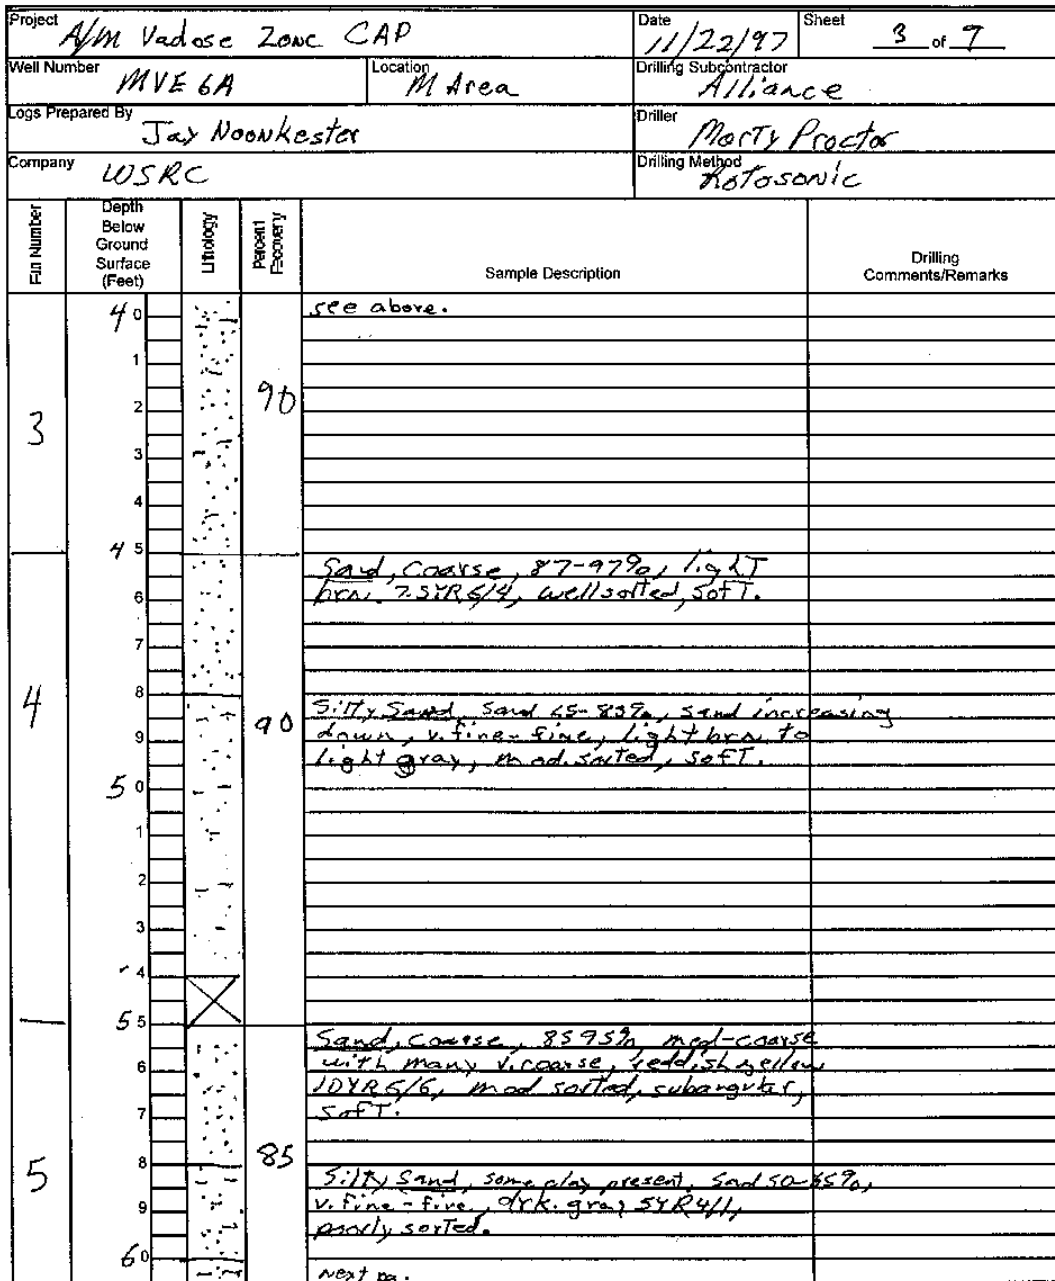 Project A/M Vadose Zone CAP Date 11/22/97 Sheet 3 of 9
Well Number MVE 6A Location M Area Drilling Subcontractor Alliance
Logs Prepared By Jay Noonkester Driller Morty Proctor
Company WSRC Drilling Method Rotosonic
Run Number
Depth Below Ground Surface (Feet)
Lithology
Percent Recovery
Sample Description
Drilling Comments/Remarks
40 see above.
1
2 90
3
3
4
45
Sand, coarse, 87-97%, light
6 brn. 7.5YR 6/4, well sorted, soft.
7
8
4 90 Silty Sand, Sand 65-83%, sand increasing
9 down, v. fine-fine, light brn. to
light gray, mod. sorted, soft.
50
1
2
3
4
55
Sand, coarse, 85 95% med-coarse
6 with many v. coarse, reddish yellow
10YR 6/6, mod sorted, subangular,
7 soft.
8 85
5 Silty Sand, some clay present, Sand 50-65%,
9 v. fine-fine, drk. gray 5YR 4/1,
poorly sorted.
60
next pg.